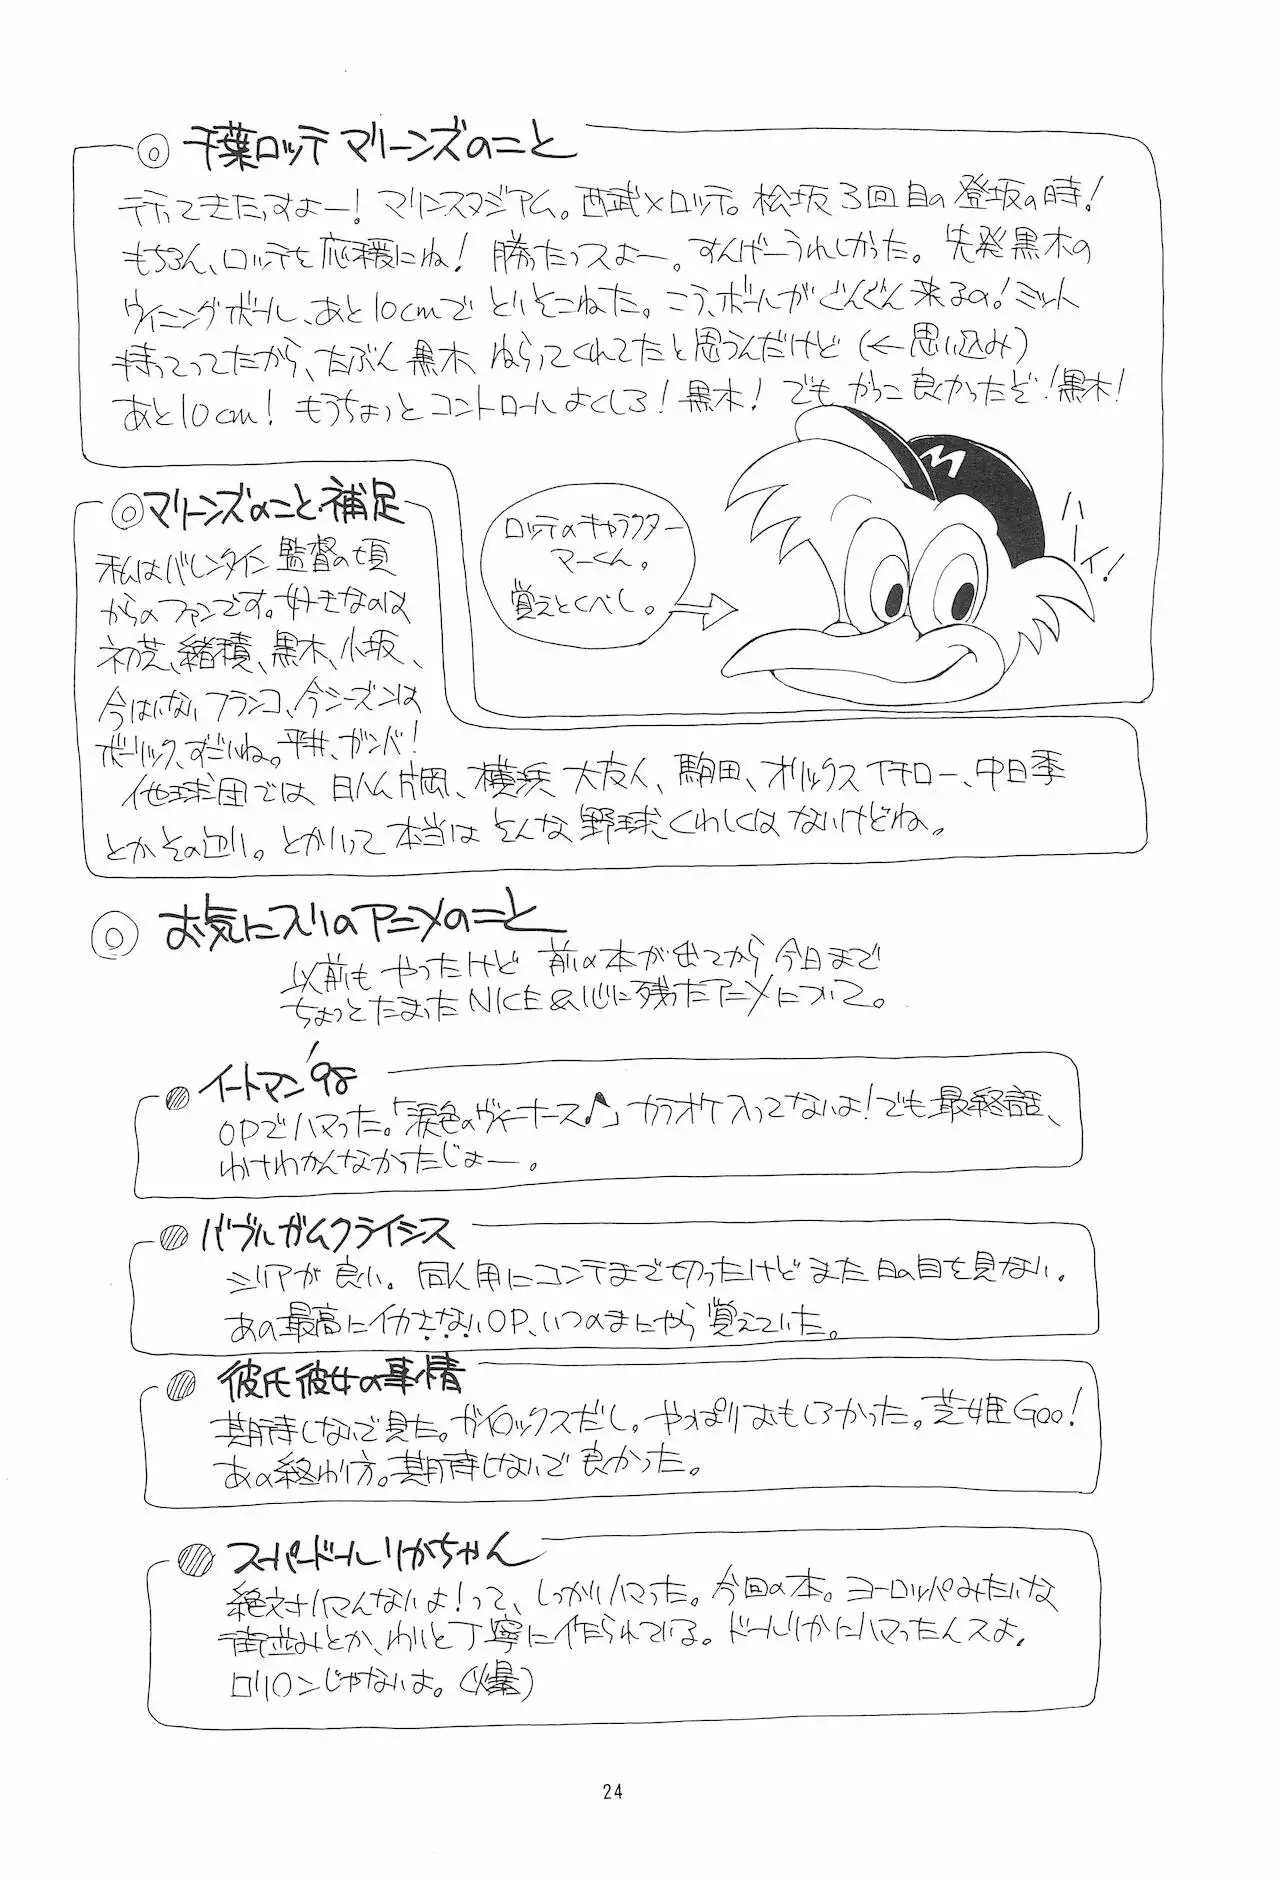 ◎ 千葉ロッテマリーンズのこと
行ってきたっすよー!マリンスタジアム。西武×ロッテ。松坂3回目の登坂の時!
もちろん、ロッテを応援にね!勝ったっスよー。すんげーうれしかった。先発黒木の
ウイニングボール、あと10cmでとりそこねた。こう、ボールがぐんぐん来るの!ミット
持ってってたから、たぶん黒木ねらってくれてたと思うんだけど(←思い込み)
あと10cm!もうちょっとコントロールよくしろ!黒木!でもかっこ良かったぞ!黒木!
ロッテのキャラクター
マーくん。
覚えとくべし。
M
ハーイ!
◎マリーンズのこと・補足
私はバレンタイン監督の頃
からのファンです。好きなのは
初芝、緒積、黒木、小坂、
今はいないフランコ、今シーズンは
ボーリック、すごいね。平井、ガンバ!
他球団では日ハム片岡、横浜大友人、駒田、オリックスイチロー、中日李
とかその辺り。とかいって本当はそんな野球くわしくはないけどね。
◎ お気に入りのアニメのこと
以前もやったけど前の本が出てから今日まで
ちょっとたまったNICE&心に残ったアニメについて。
イートマン'98
OPでハマった。「涙色のヴィーナス♪」カラオケ入ってないよ!でも最終話、
わけわかんなかったじょー。
バブルガムクライシス
シリアが良い。同人用にコンテまで切ったけどまた日の目を見ない。
あの最高にイカさないOP、いつのまにやら覚えていた。
彼氏彼女の事情
期待しないで見た。ガイロックスだし。やっぱりおもしろかった。芝姫Goo!
あの終わり方。期待しないで良かった。
スーパードールリカちゃん
絶対ハマんないよ!って、しっかりハマった。今回の本。ヨーロッパみたいな
街並みとか、わりと丁寧に作られている。ドールリカにハマったんスよ。
ロリロンじゃないよ。(爆)
24